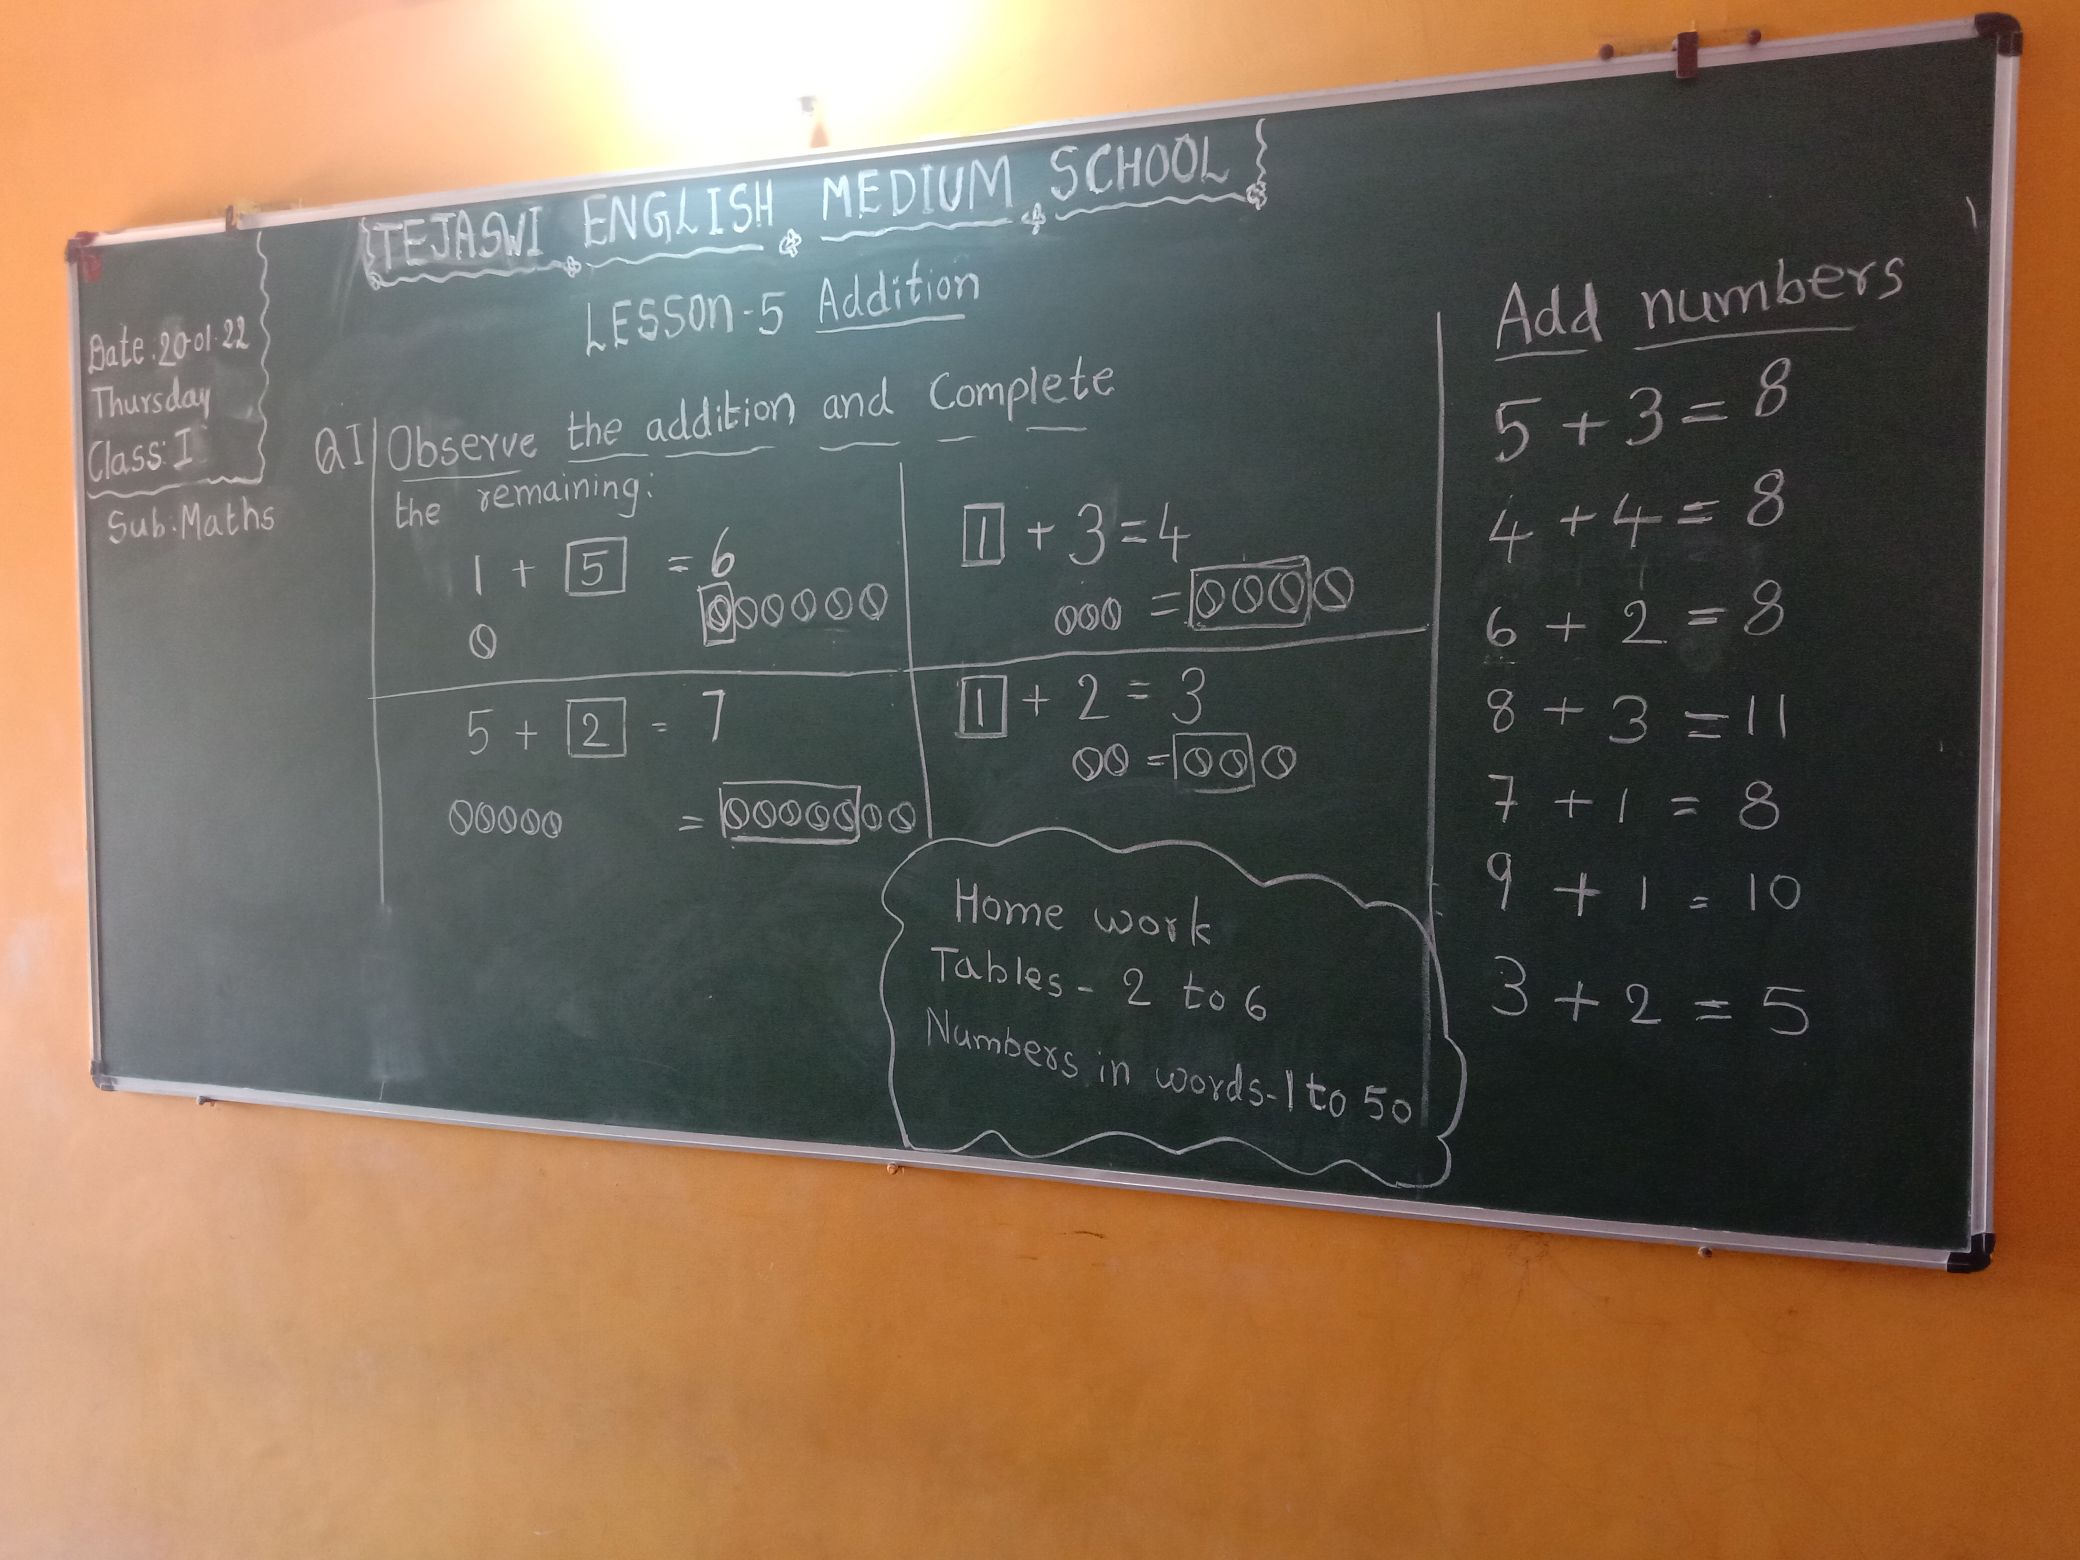 TEJASWI ENGLISH MEDIUM SCHOOL
Date : 20-01-22
Thursday
Class: I
Sub: Maths
LESSON-5 Addition
QI Observe the addition and Complete
the remaining:
1 + 5 = 6
1 + 3 = 4
=
5 + 2 = 7
=
1 + 2 = 3
=
Home work
Tables - 2 to 6
Numbers in words - 1 to 50
Add numbers
5 + 3 = 8
4 + 4 = 8
6 + 2 = 8
8 + 3 = 11
7 + 1 = 8
9 + 1 = 10
3 + 2 = 5